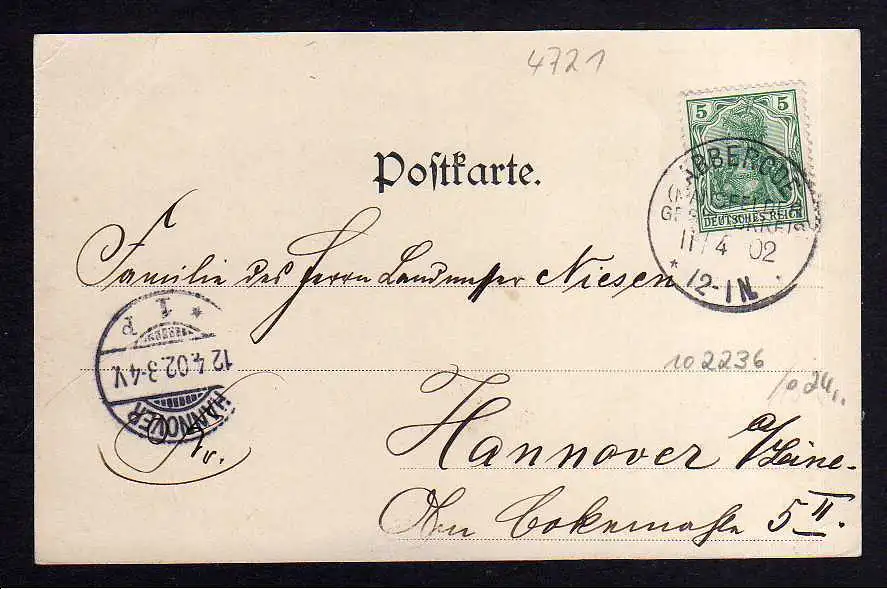 4721
5 5
DEUTSCHES REICH
ABBERODE
(MANSFELDER
GEBIRGSKREIS)
11/4 02
* 12-1N. *
Postkarte.
Familie des Herrn Landmesser Niesen
* 1 P
12.4.02.3-4V.
HANNOVER
102236
Hannover a/Leine.
Am Bokemahle 5 II.